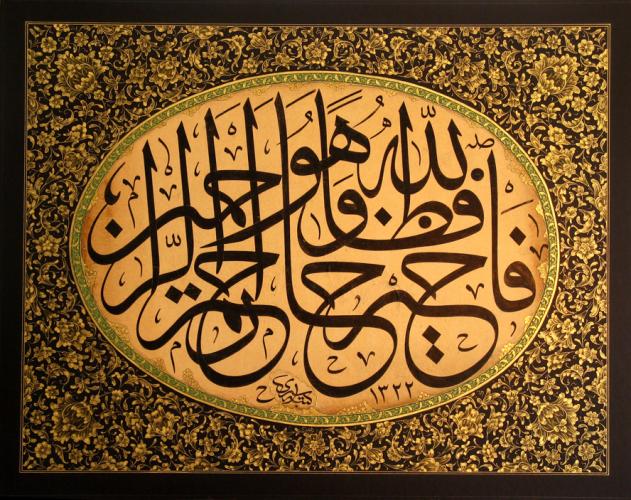 فالله خير حافظا وهو أرحم الراحمين
١٣٢٢